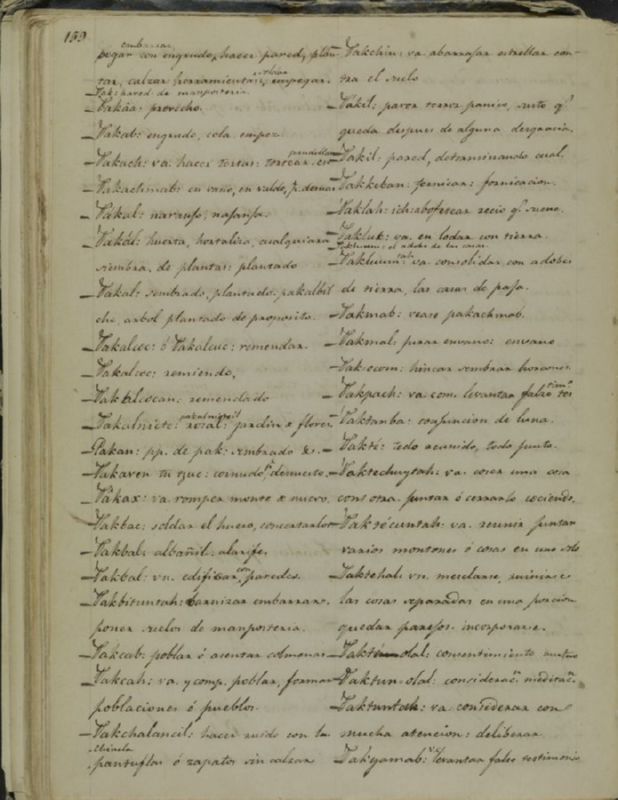 159
embarrar,
pegar con engrudo, hacer pared, plan-
tar, calzar herramientas, empegar.
Pak: pared de manposteria.
Pakáa: provecho.
Pakab: engrudo, cola. empez
Pakach: va. hacer tortas: tortear.
Pakachmab: en vano, en valde, p. demas
Pakal: naranjo, naranja.
Pakál: huerta, hortaliza, cualquiera
siembra, de plantas: plantado
Pakal: sembrado, plantado. pakalbil
che, arbol plantado de proposito.
Pakalcoc: ó Pakalcuc: remendar.
Pakalcoc: remiendo,
Pakblcocan: remendado
pakalnicteil
Pakalnicte: rosal: jardin x flores
Pakan: pp. de pak: sembrado &.
Pakaren tu tzuc: cornudo,
Pákax: va. romper monte x nuevo.
Pakbac: soldar el hueso, concertarlos
Pakbal: albañil: alarife.
Pakbal: vn. edificar con paredes.
Pakbituntah: barnizar embarrar.
poner suelos de manposteria.
Pakcab: poblar ó asentar colmenas
Pakcah: va. y comp. poblar, formar
poblaciones ó pueblos.
Pakchalancil: hacer ruido con la
chinela
pantuflas ó zapatos sin calzar
Pakchin: va abarrasar estrellar con-
tra el suelo
Pakil: pavor terror panico, susto q.
queda despues de alguna desgracia.
Pakil: pared, determinando cual.
Pakkeban: fornicar: fornicacion.
Paklah: ich: abofetear recio q. suene.
Pakluk: va. en lodar con tierra.
Pakluum: el adobe de las casas.
Pakluum: va. consolidar con adobes
de tierra, las casas de paja.
Pakmab: vease pakachmab.
Pakmal: parar en vano: en vano
Pakocom: hincar sembrar horcones.
Pakpach: va. com. levantar falso tes tim.
Paktanba: conjuncion de luna.
Pakté: todo reunido, todo junto.
Paktechuytah: va. coser una cosa
con otra. juntar ó cerrarlo cociendo.
Paktécuntah: va. reunir juntar
varios montones ó cosas en uno solo
Paktehal: vn. mesclarse, unirse
las cosas separadas en una porcion
quedar parejos. incorporarse.
Paktun olal: consentimiento mutuo
Paktun olal: consideracn. meditacn.
Paktuntah: va considerar con
mucha atencion: deliberar
Pakyamab: va. levantar falso testimonio